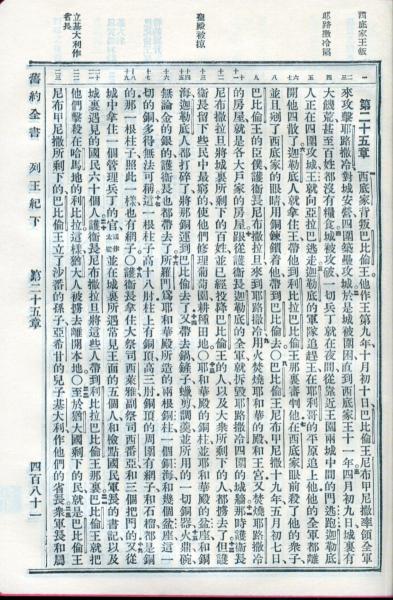 西底家王叛
耶路撒冷陷
聖殿被掠
立基大利作
省長
第二十五章 西底家背叛巴比倫王他作王第九年十月初十日巴比倫王尼布甲尼撒率領全軍
來攻擊耶路撒冷對城安營四圍築壘攻城於是城被圍困直到西底家王十一年四月初九日城裏有
大饑荒甚至百姓都沒有糧食城被攻破一切兵丁就在夜間從靠近王園兩城中間的門逃跑迦勒底
人正在四圍攻城王就向亞拉巴逃走迦勒底的軍隊追趕王在耶利哥的平原追上他他的全軍都離
開他四散了迦勒底人就拿住王帶他到利比拉巴比倫王那裏審判他在西底家眼前殺了他的衆子
並且剜了西底家的眼睛用銅鍊鎖着他帶到巴比倫去○巴比倫王尼布甲尼撒十九年五月初七日
巴比倫王的臣僕護衛長尼布撒拉旦來到耶路撒冷用火焚燒耶和華的殿和王宮又焚燒耶路撒冷
的房屋就是各大戶家的房屋跟從護衛長迦勒底的全軍就拆毀耶路撒冷四圍的城牆那時護衛長
尼布撒拉旦將城裏所剩下的百姓並已經投降巴比倫王的人以及大衆所剩下的人都擄去了但護
衛長留下些民中最窮的使他們修理葡萄園耕種田地○耶和華殿的銅柱並耶和華殿的盆座和銅
海迦勒底人都打碎了將那銅運到巴比倫去了又帶去鍋鏟子蠟剪調羹並所用的一切銅器火鼎碗
無論金的銀的護衛長也都帶去了所羅門爲耶和華殿所造的兩根銅柱一個銅海和幾個盆座這一
切的銅多得無法可稱這一根柱子高十八肘柱上有銅頂高三肘銅頂的周圍有網子和石榴都是銅
的那一根柱子照此一樣也有網子○護衛長拿住大祭司西萊雅副祭司西番亞和三個把門的又從
城中拿住一個管理兵丁的官或作太監並在城裏所遇常見王面的五個人和檢點國民軍長的書記以及
城裏遇見的國民六十個人護衛長尼布撒拉旦將這些人帶到利比拉巴比倫王那裏巴比倫王就把
他們擊殺在哈馬地的利比拉這樣猶大人被擄去離開本地○至於猶大國剩下的民就是巴比倫王
尼布甲尼撒所剩下的巴比倫王立了沙番的孫子亞希甘的兒子基大利作他們的省長衆軍長和屬
舊約全書 列王紀下 第二十五章 四百八十一